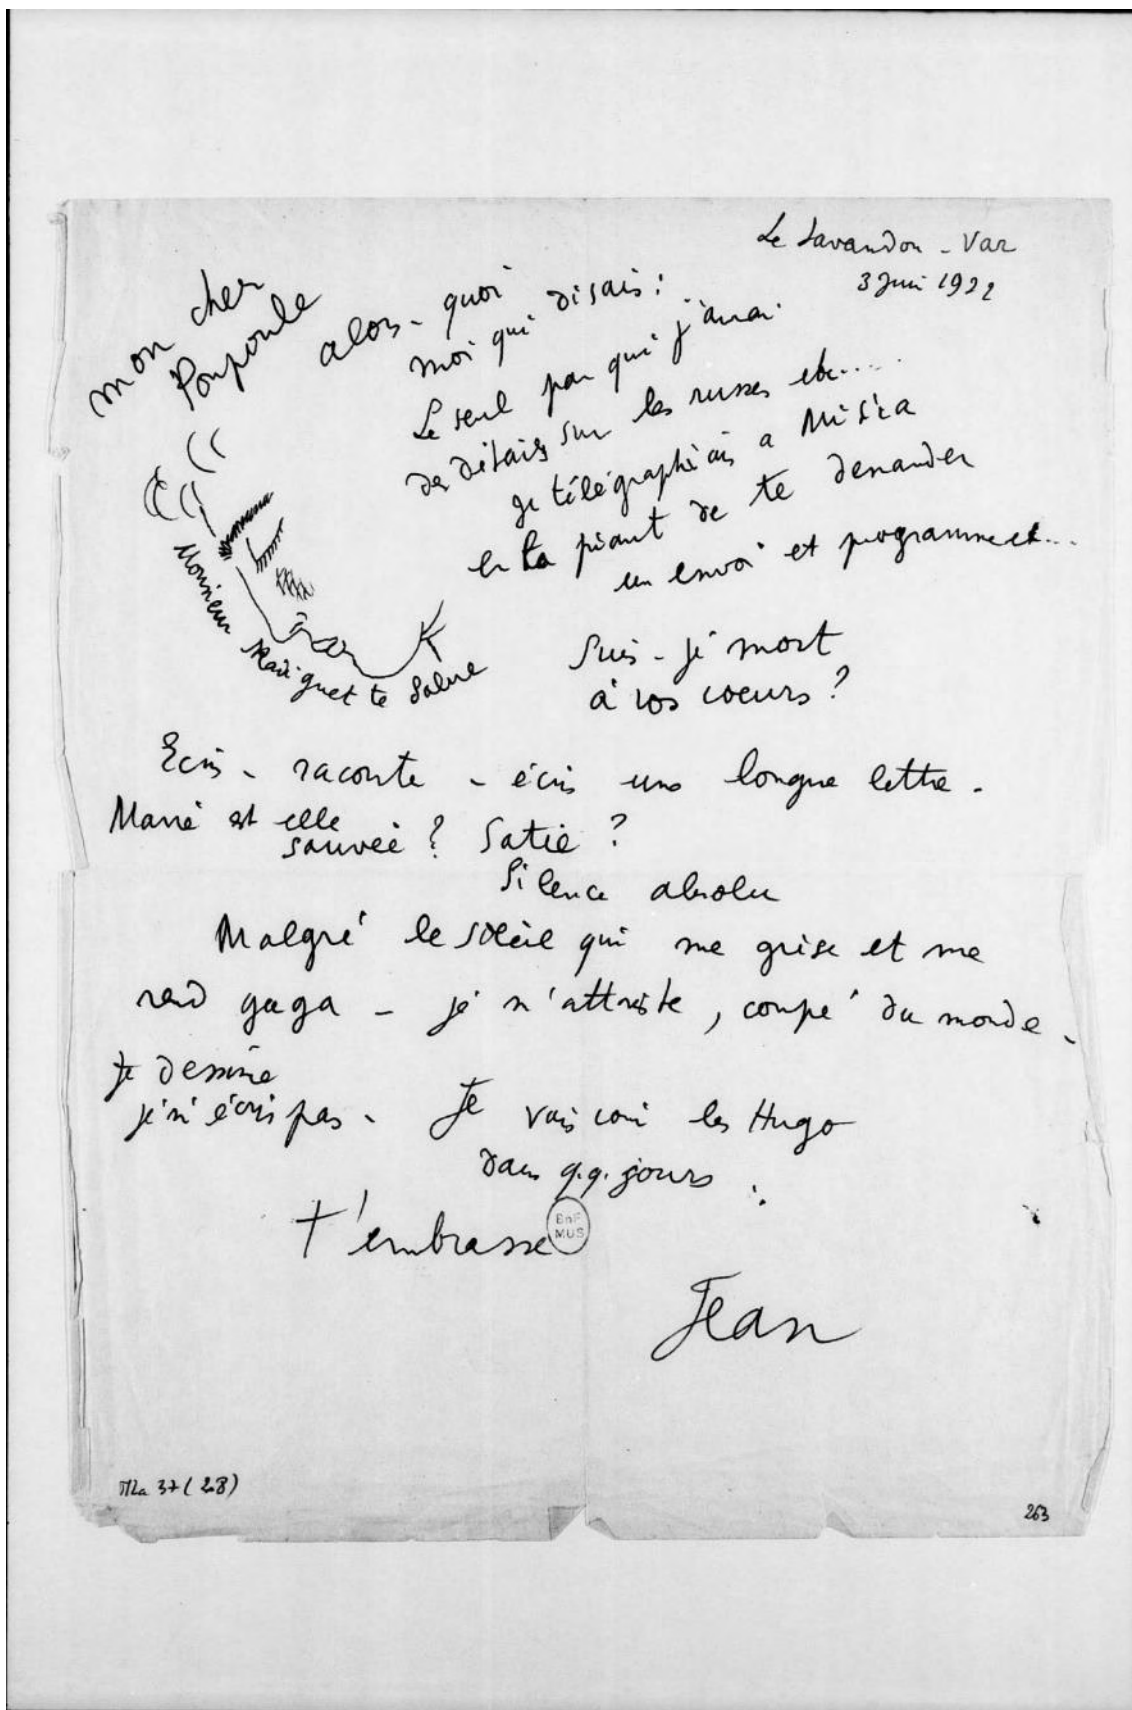 Le Lavandou - Var
3 Juin 1922
mon cher
Poupoule
alors - quoi
moi qui disais :
Le seul par qui j'aurai
des détails sur les russes etc.....
Je télégraphiais a Misia
en la priant de te demander
un envoi et programme et...
Monsieur Radiguet te salue
Suis-je mort
à vos coeurs ?
Ecris - raconte - écris une longue lettre -
Marie est elle
sauvée ? Satie ?
Silence absolu
Malgré le soleil qui me grise et me
rend gaga - je m'attriste, coupé du monde -
Je dessine
je n'écris pas - Je vais voir les Hugo
dans q.q. jours .
t'embrasse
BnF
MUS
Jean
37 (28)
263